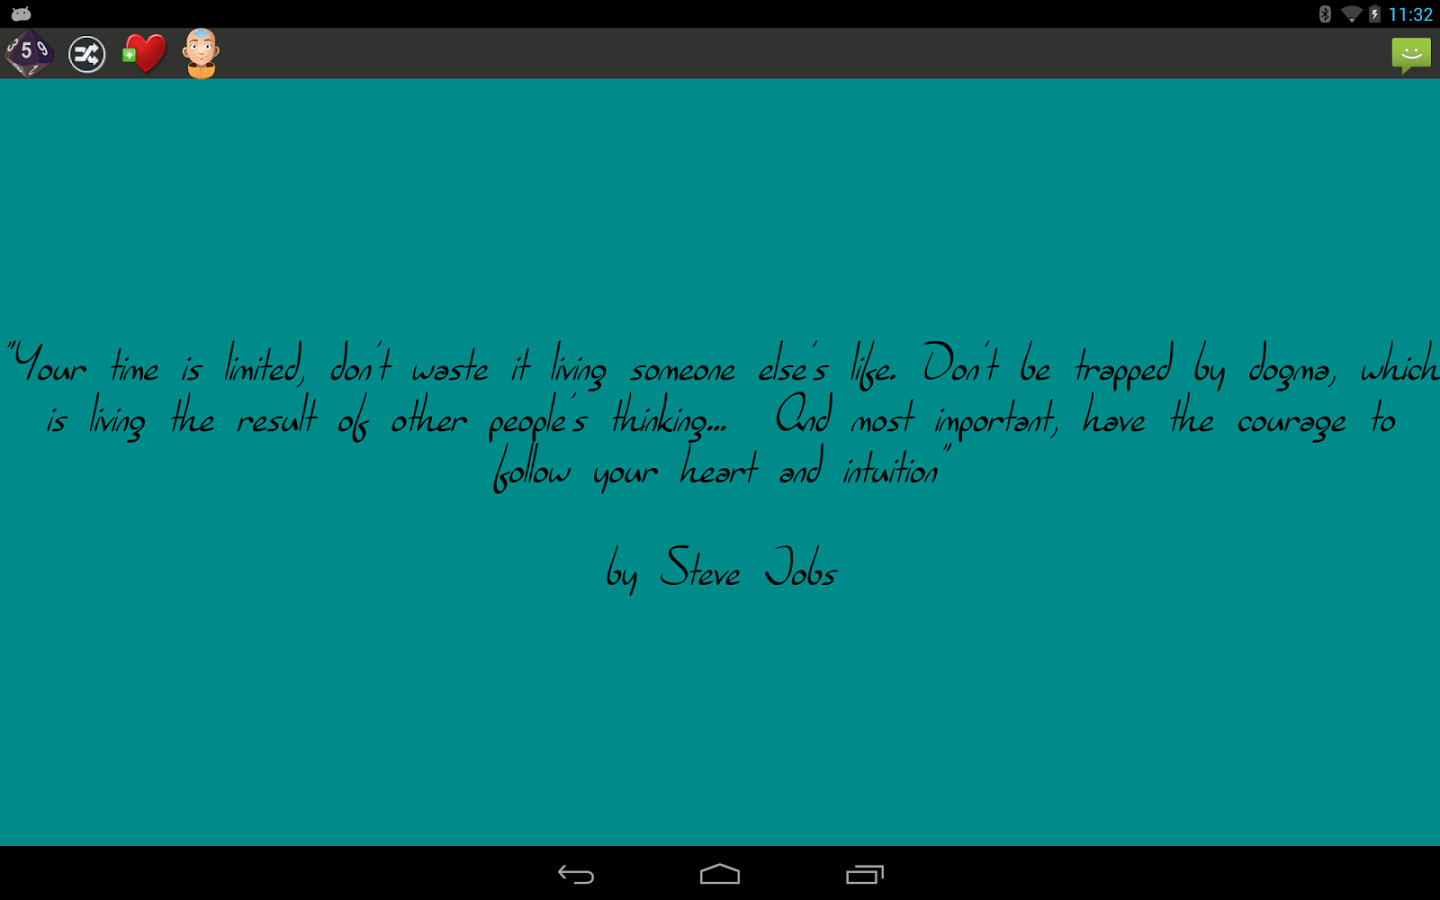 11:32
5 9
"Your time is limited, don't waste it living someone else's life. Don't be trapped by dogma, which
is living the result of other people's thinking... And most important, have the courage to
follow your heart and intuition"
by Steve Jobs